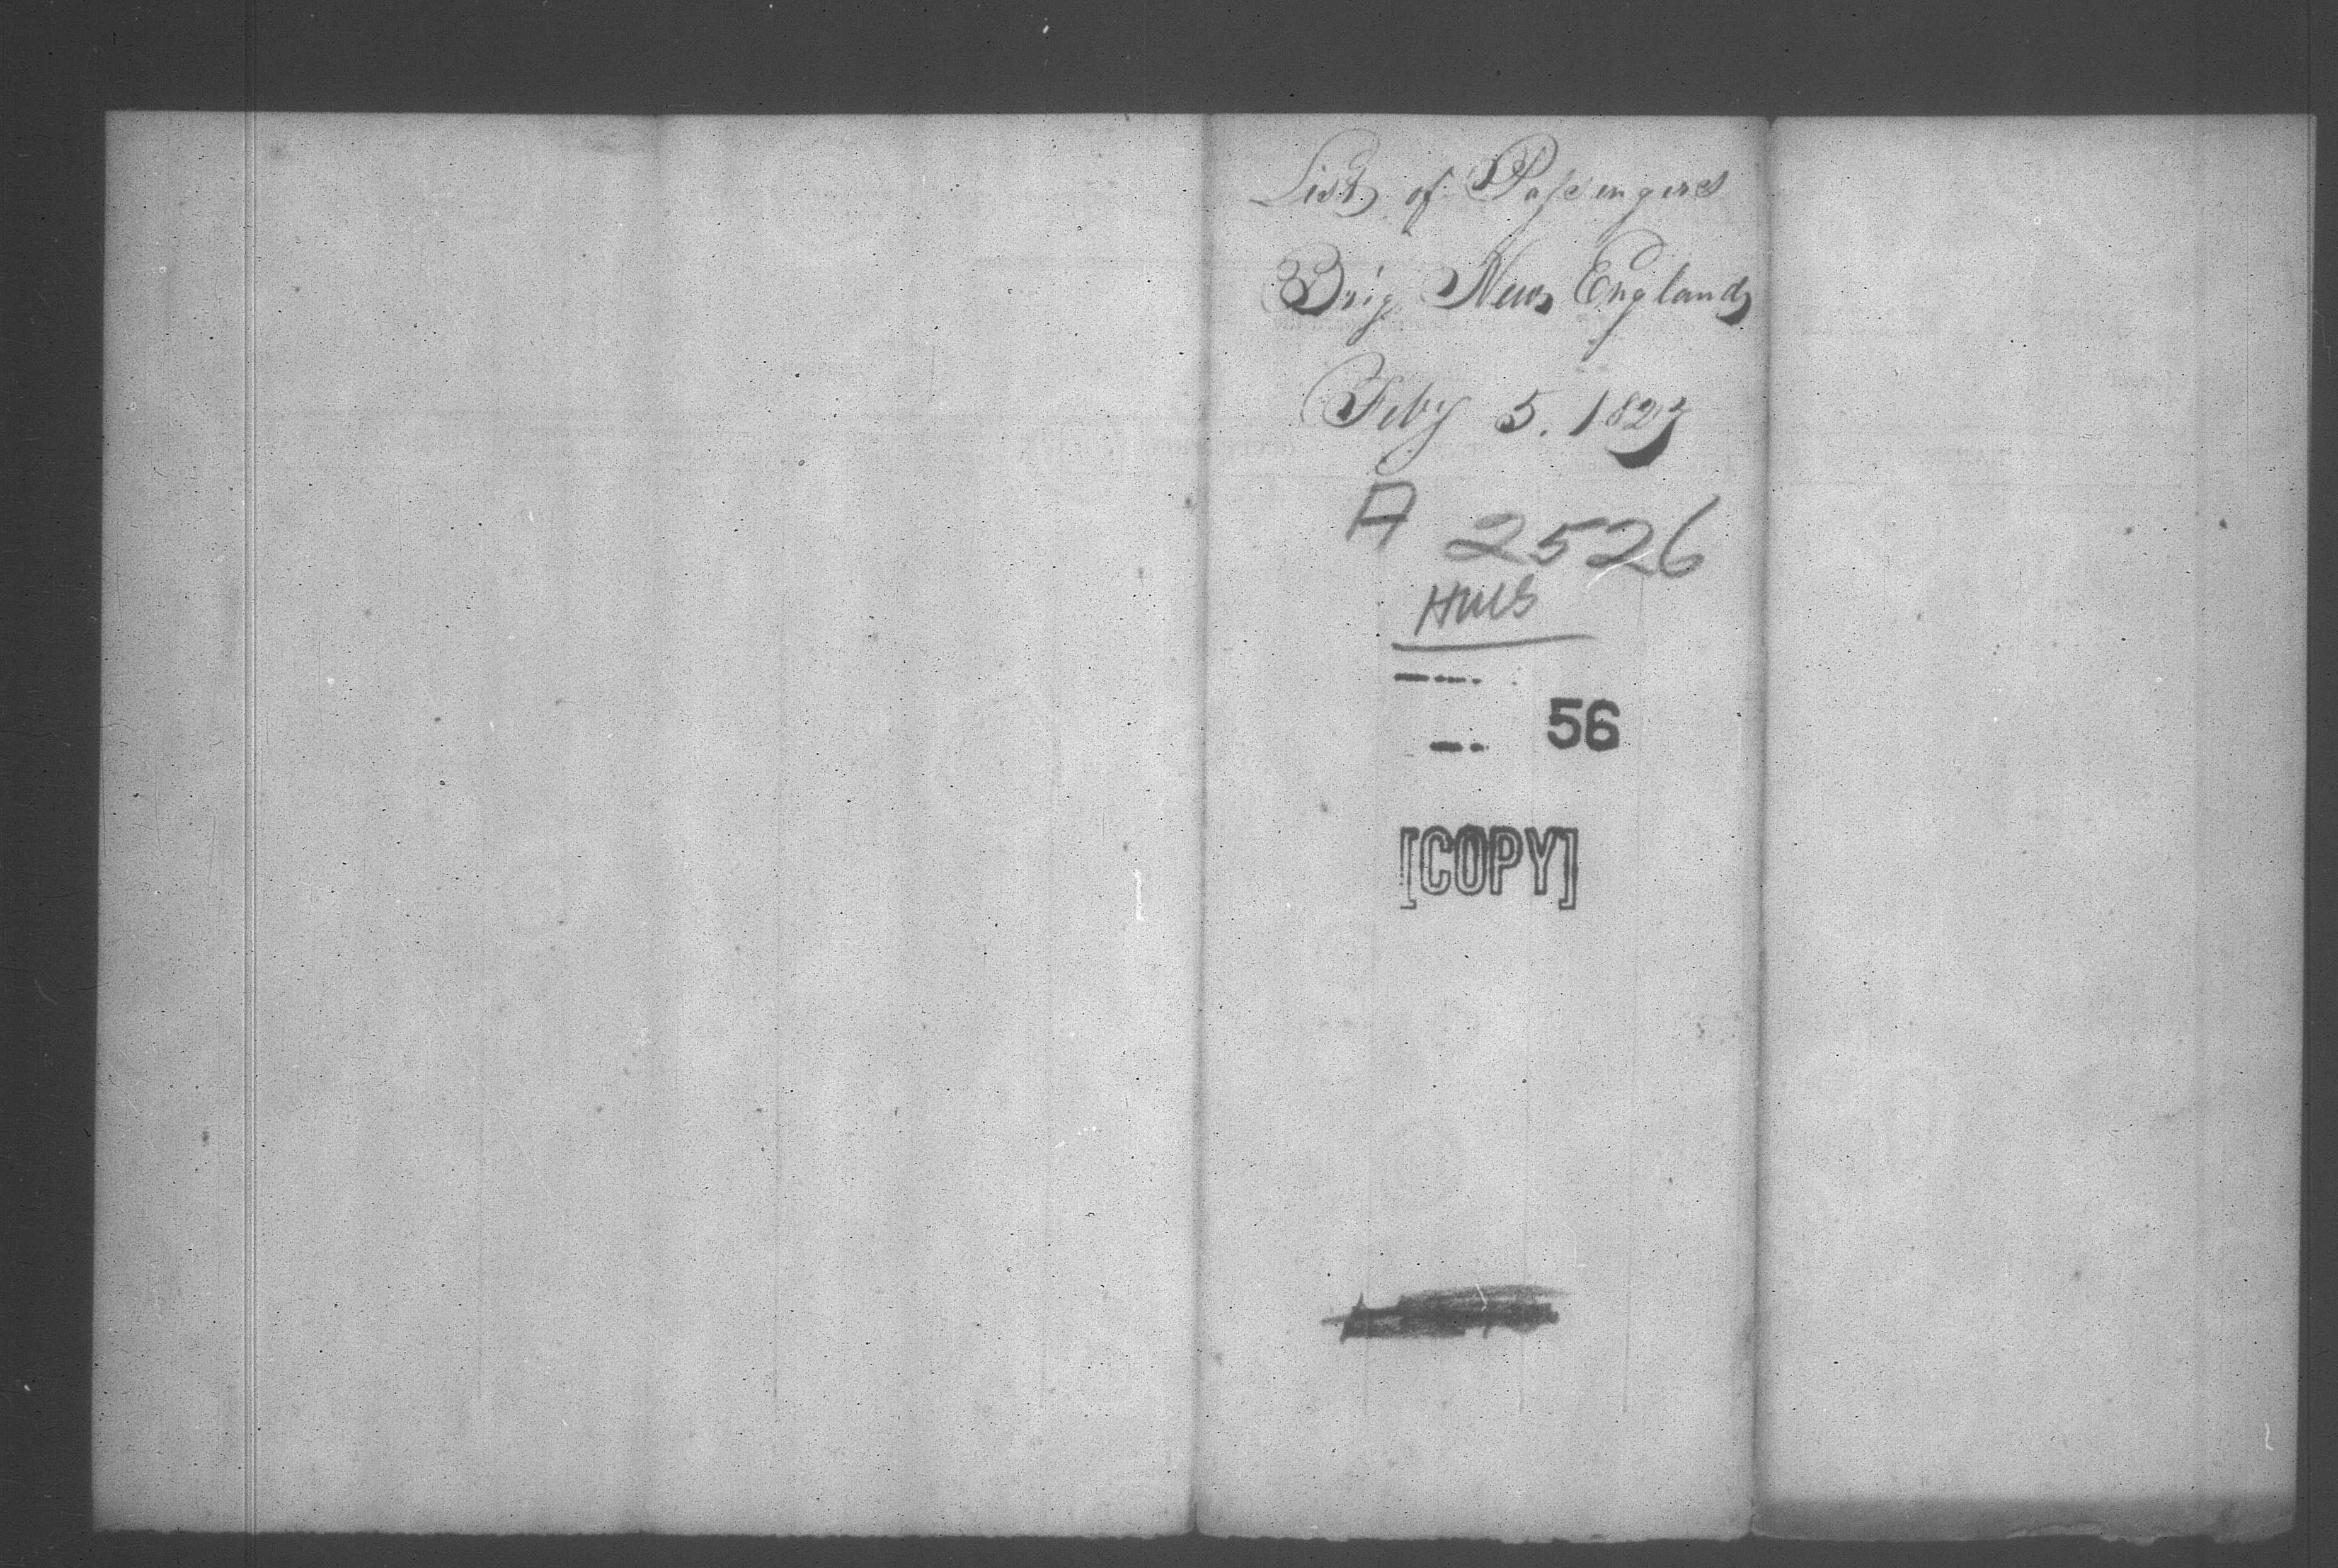 List of Passengers
Brig New England
Feby 5. 1827
A 2526
HMS
56
[COPY]